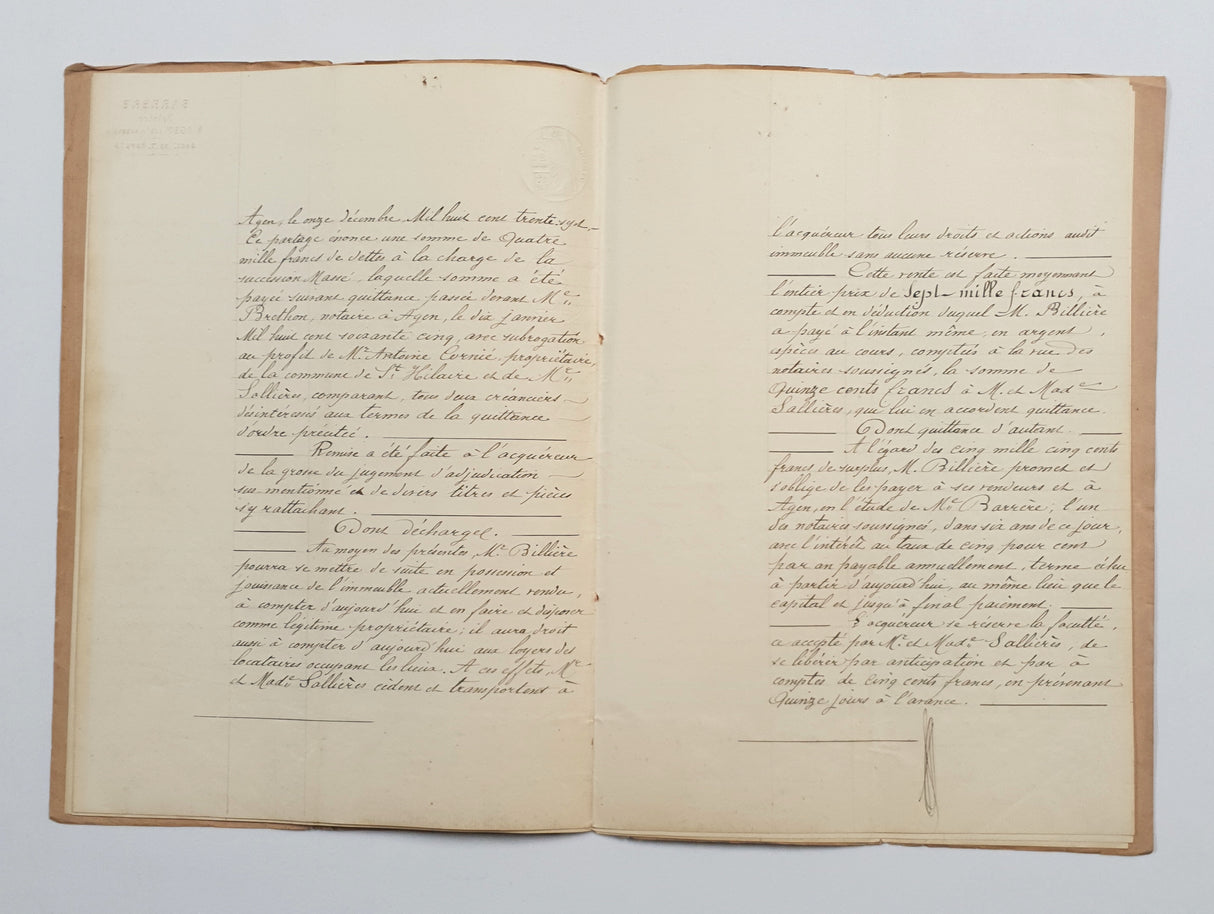 Agen, le onze décembre Mil huit cent trente-sept,
Ce partage énonce une somme de Quatre
mille francs de dettes à la charge de la
succession Massé, laquelle somme a été
payée suivant quittance passée devant Me.
Brethon, notaire à Agen, le dix janvier
Mil huit cent soixante cinq, avec subrogation
au profit de Mr. Antoine propriétaire,
de la commune de St. Hilaire et de Mr.
Sallières, comparant, tous deux créanciers
désintéressés aux termes de la quittance
d'ordre précitée.
Remise a été faite à l'acquéreur
de la grosse du jugement d'adjudication
sus-mentionné et de divers titres et pièces
s'y rattachant.
Dont décharge.
Au moyen des présentes, Mr. Billière
pourra se mettre de suite en possession et
jouissance de l'immeuble actuellement vendu,
à compter d'aujourd'hui et en faire et disposer
comme légitime propriétaire; il aura droit
aussi à compter d'aujourd'hui aux loyers des
locataires occupant les lieux. A ces effets, Mr.
et Made. Sallières cèdent et transportent à
l'acquéreur tous leurs droits et actions audit
immeuble sans aucune réserve.
Cette vente est faite moyennant
l'entier prix de Sept-mille francs, à
compte et en déduction duquel M. Billière
a payé à l'instant même, en argent,
espèces au cours, comptés à la vue des
notaires soussignés, la somme de
Quinze cents francs à M. et Made.
Sallières, qui lui en accordent quittance.
Dont quittance d'autant.
A l'égard des cinq mille cinq cents
francs de surplus, M. Billière promet et
s'oblige de les payer à ses vendeurs et à
Agen, en l'étude de Me. Barrère, l'un
des notaires soussignés, dans six ans de ce jour,
avec l'intérêt au taux de cinq pour cent
par an payable annuellement, terme échu
à partir d'aujourd'hui, au même lieu que le
capital et jusqu'à final paiement.
L'acquéreur se réserve la faculté,
a accepté par Mr. et Made. Sallières, de
se libérer par anticipation et par à
comptes de cinq cents francs, en prévenant
Quinze jours à l'avance.